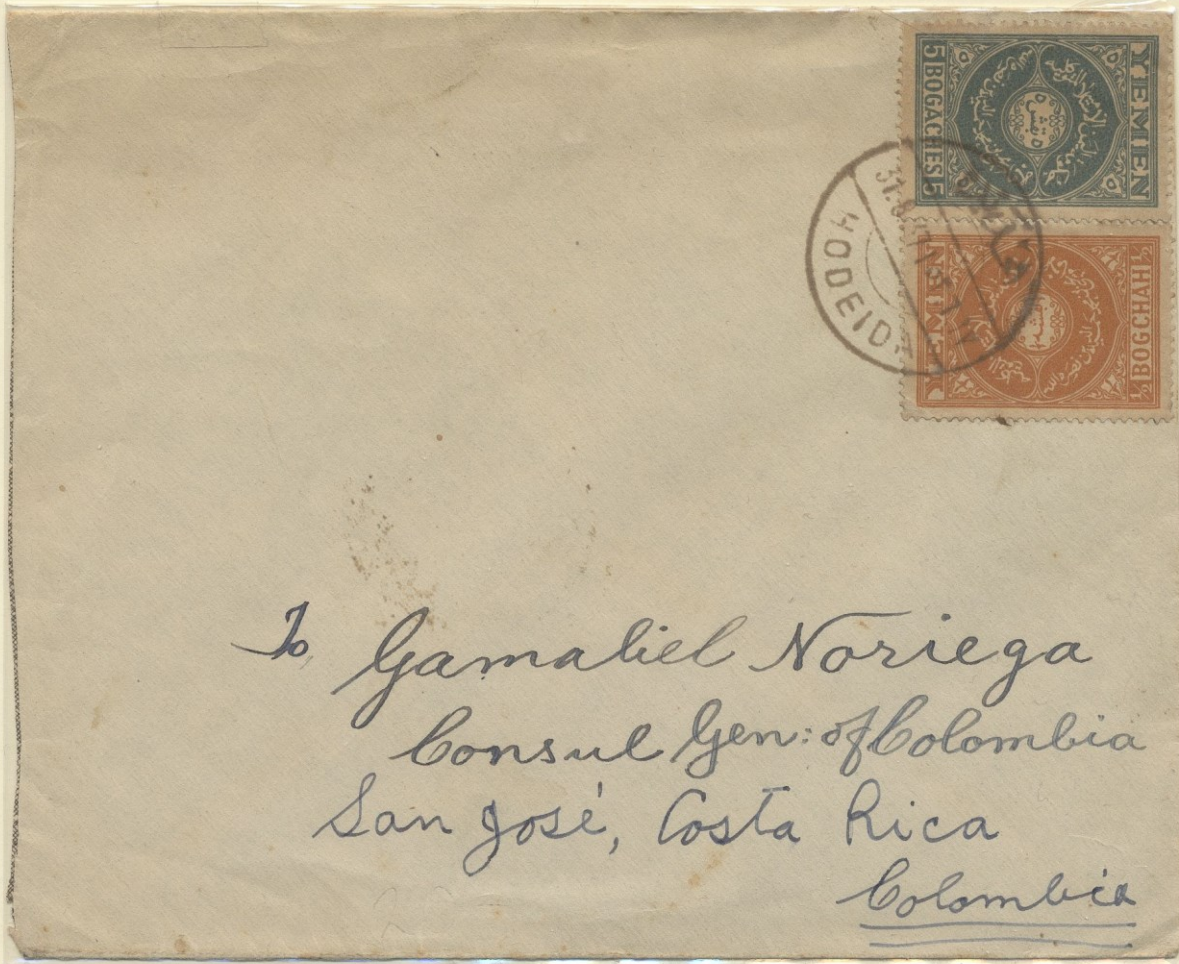 YEMEN
5 BOGACHES 5
٥ بقشة
YEMEN
½ BOGCHAH ½
HODEIDA
To, Gamaliel Noriega
Consul Gen: of Colombia
San José, Costa Rica
Colombia